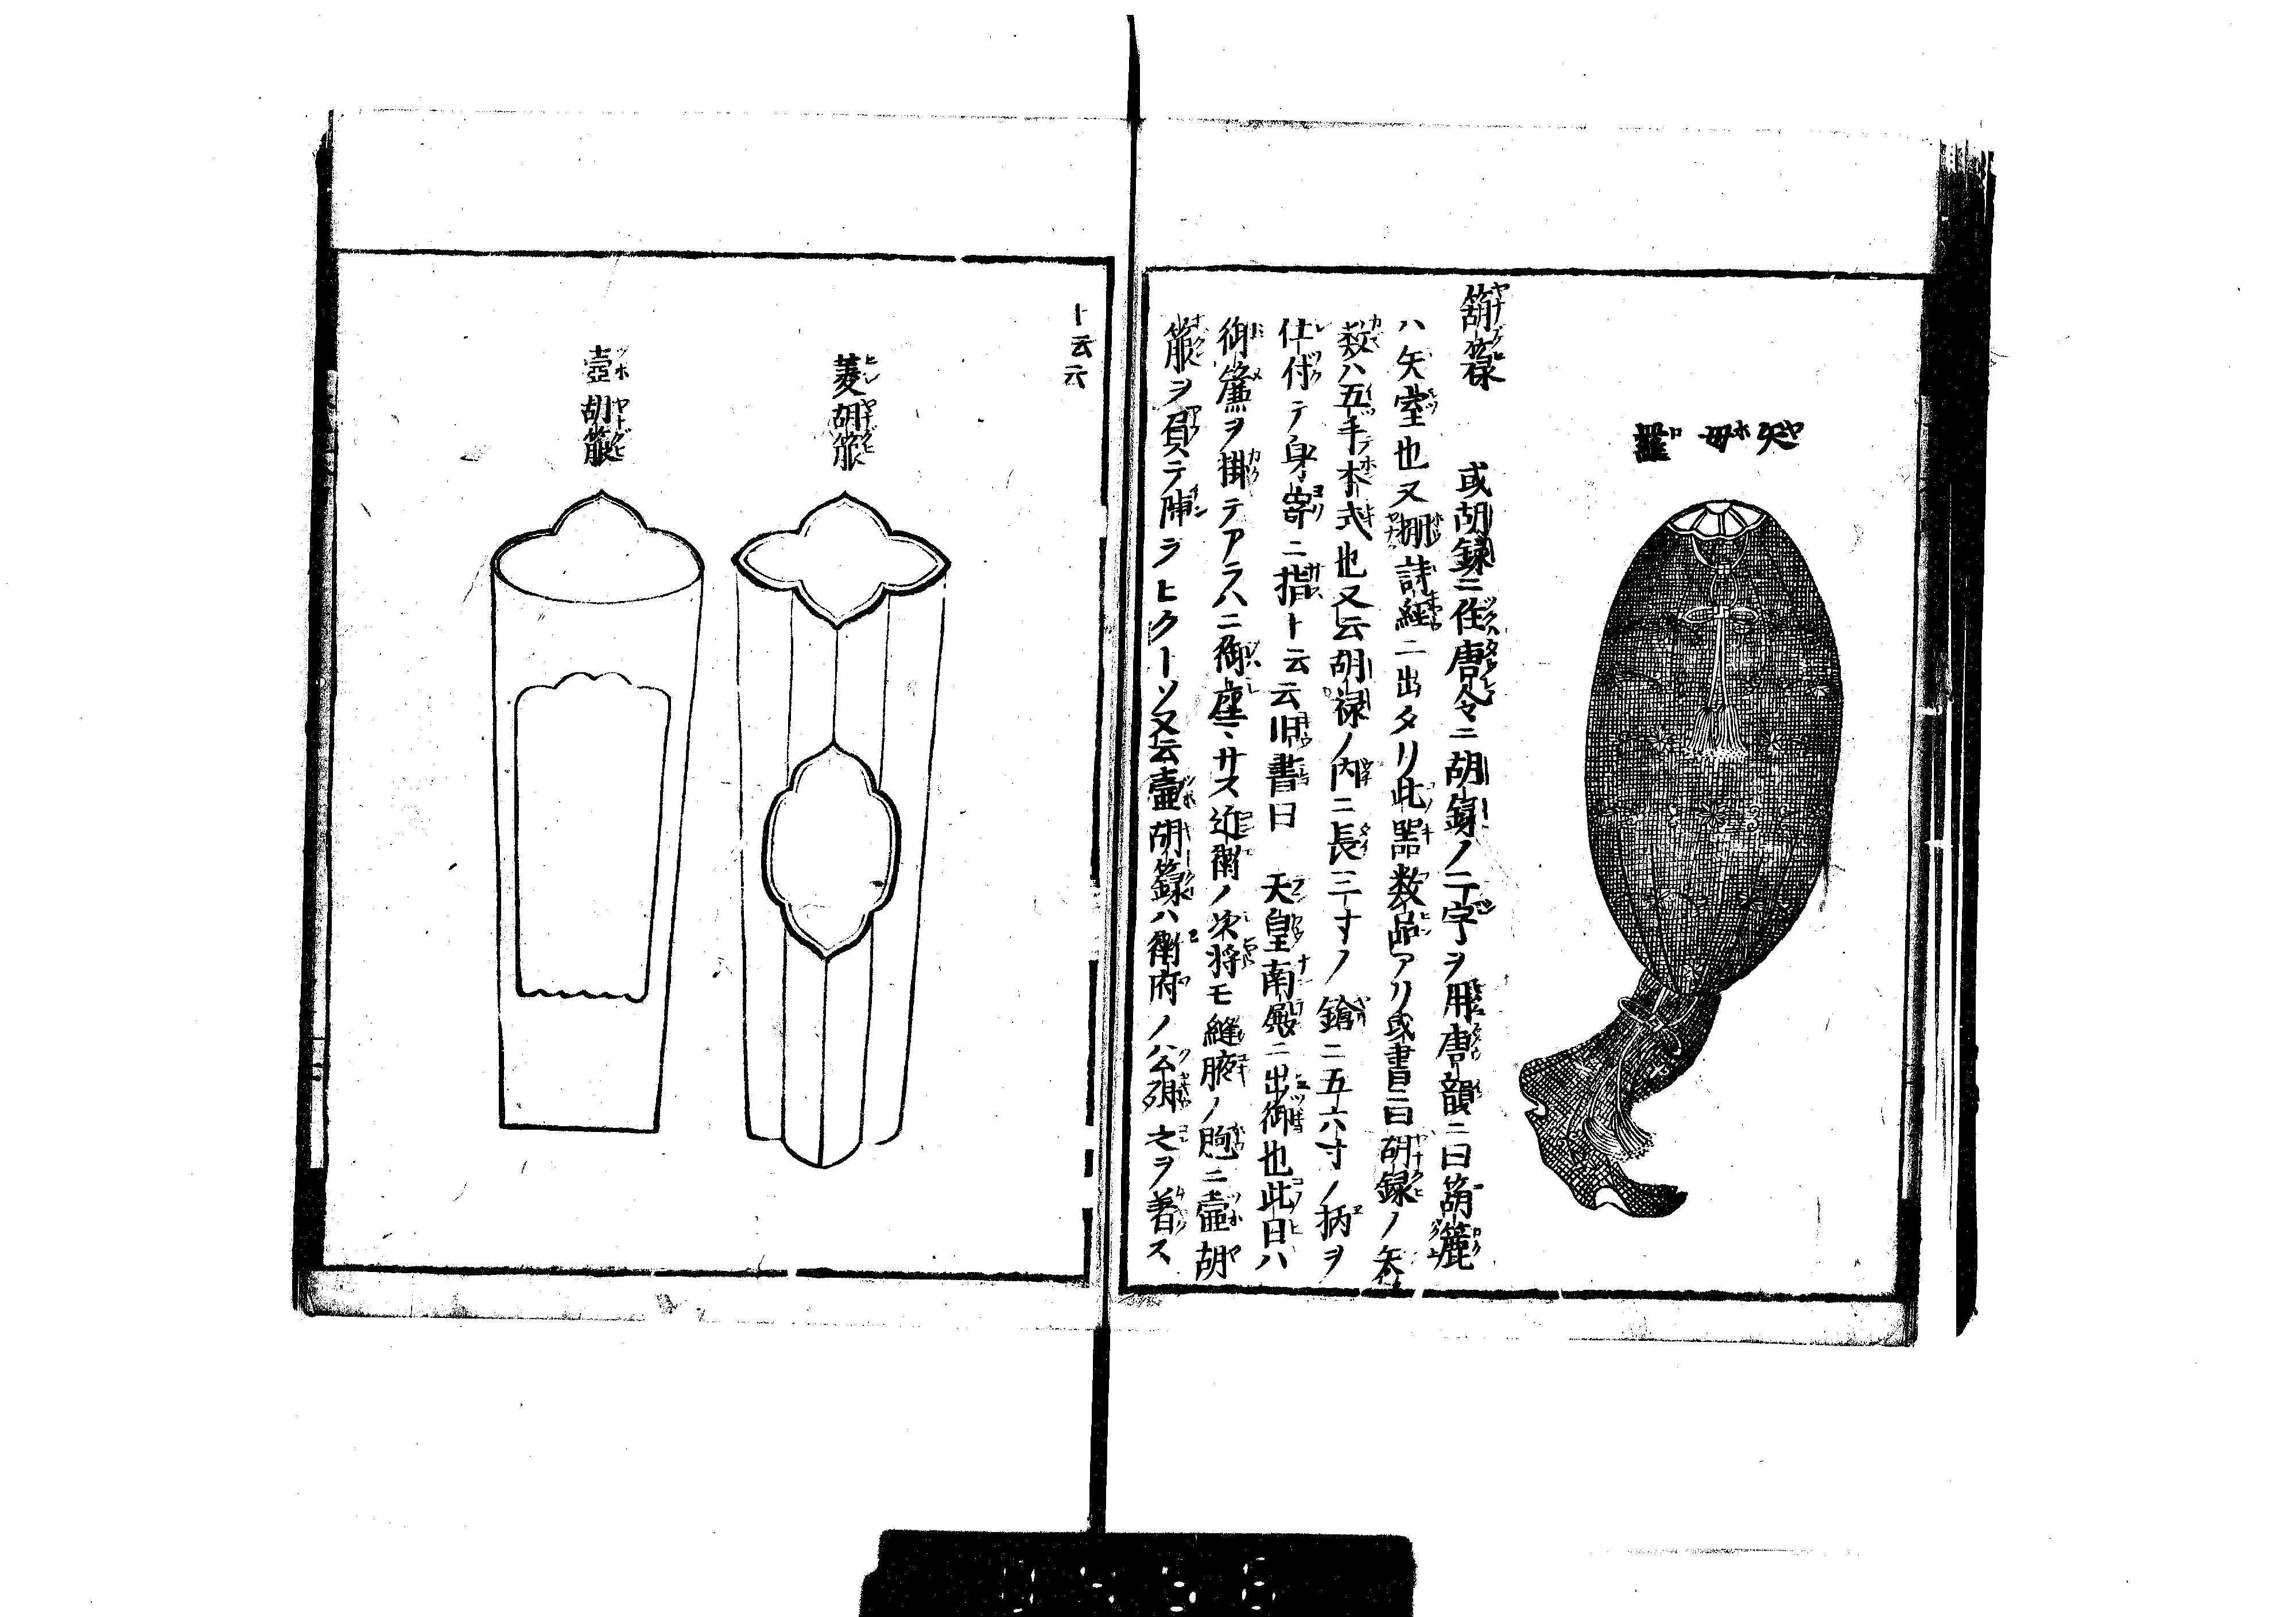 矢母羅
箶簶 或胡録ニ作唐令ニ胡籙ノ二字ヲ用唐韻ニ曰箶簏
ハ矢室也又掤詩經ニ出タリ此器数品アリ或書ニ曰胡録ノ矢
数ハ五手本式也又云胡禄ノ内ニ長三寸ノ鎗ニ五六寸ノ柄ヲ
仕付テ身寄ニ指ト云云旧書曰 天皇南殿ニ出御也此日ハ
御簾ヲ掛テアラハニ御座マサス近衛ノ次将モ縫腋ノ袍ニ壷胡
簶ヲ負テ陣ヲヒクーソ又云壷胡籙ハ衛府ノ公卿之ヲ着ス
ト云云
菱胡簶
壺胡簶